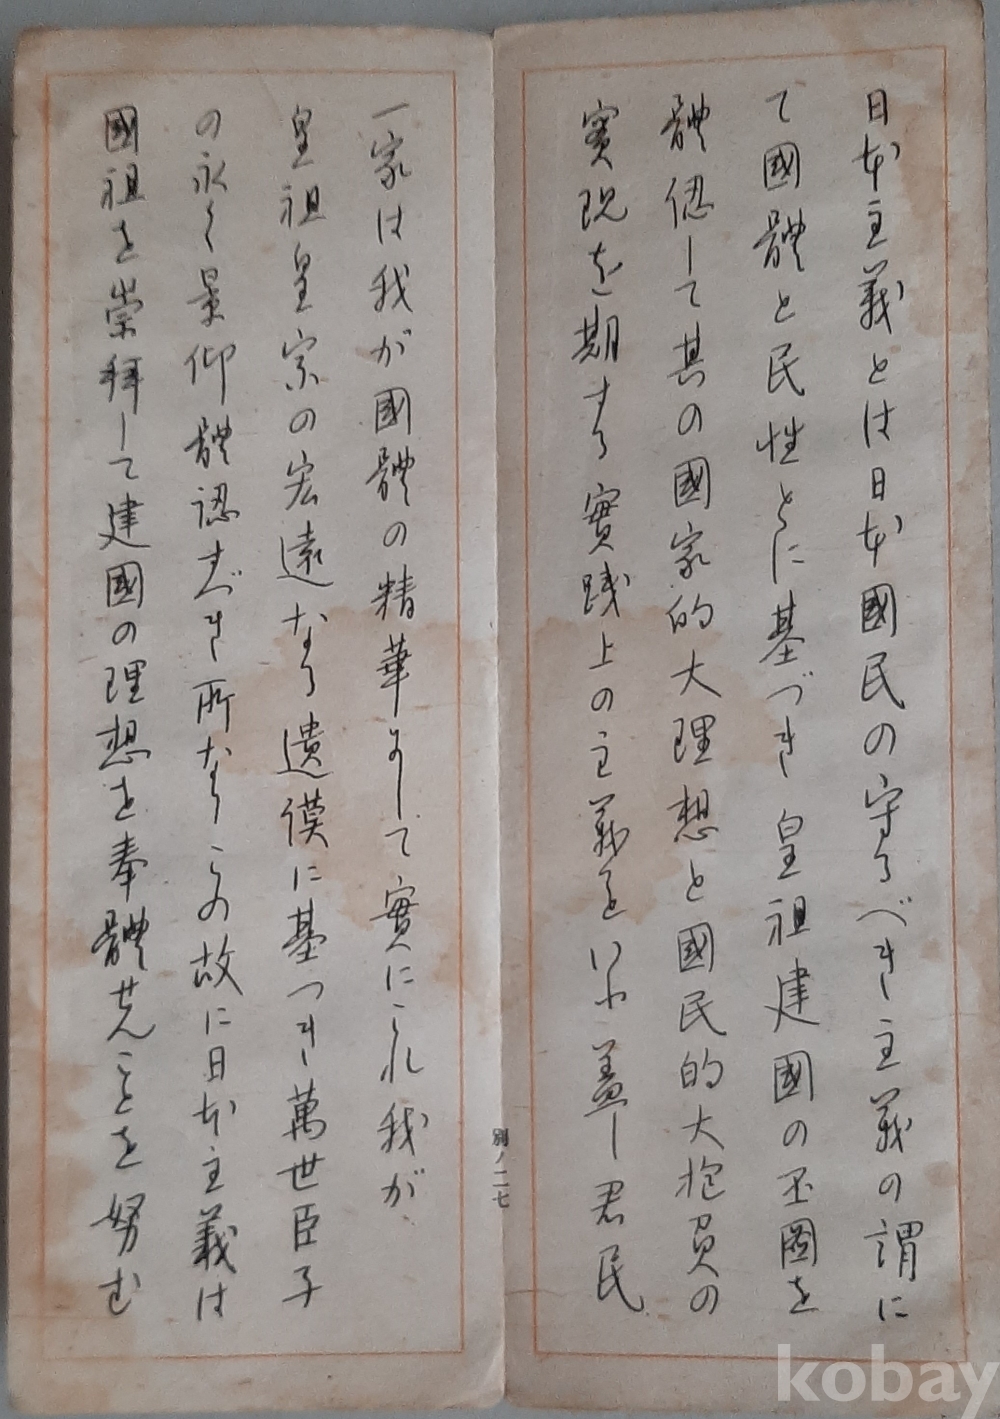 日本主義とは日本國民の守るべき主義の謂に
て國體と民性とに基づき皇祖建國の丕圖を
體認して其の國家的大理想と國民的大抱負の
實現を期する實踐上の主義をいふ蓋し君民
一家は我が國體の精華にして實にこれ我が
皇祖皇宗の宏遠なる遺謨に基づき萬世臣子
の永く景仰體認すべき所なりこの故に日本主義は
國祖を崇拜して建國の理想を奉體せんことを努む
別ノ二七
kobay